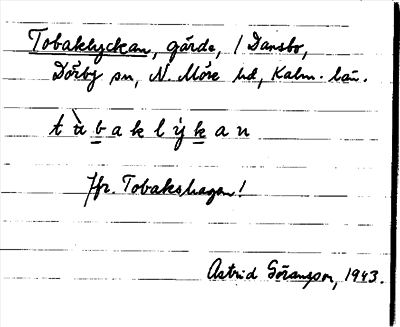 Tobaklyckan, gärde, i Dansbo,
Dörby sn, N. Möre hd, Kalm. län.
tὺbaklỳkan
Jfr. Tobakshagen!
Astrid Göransson, 1943.